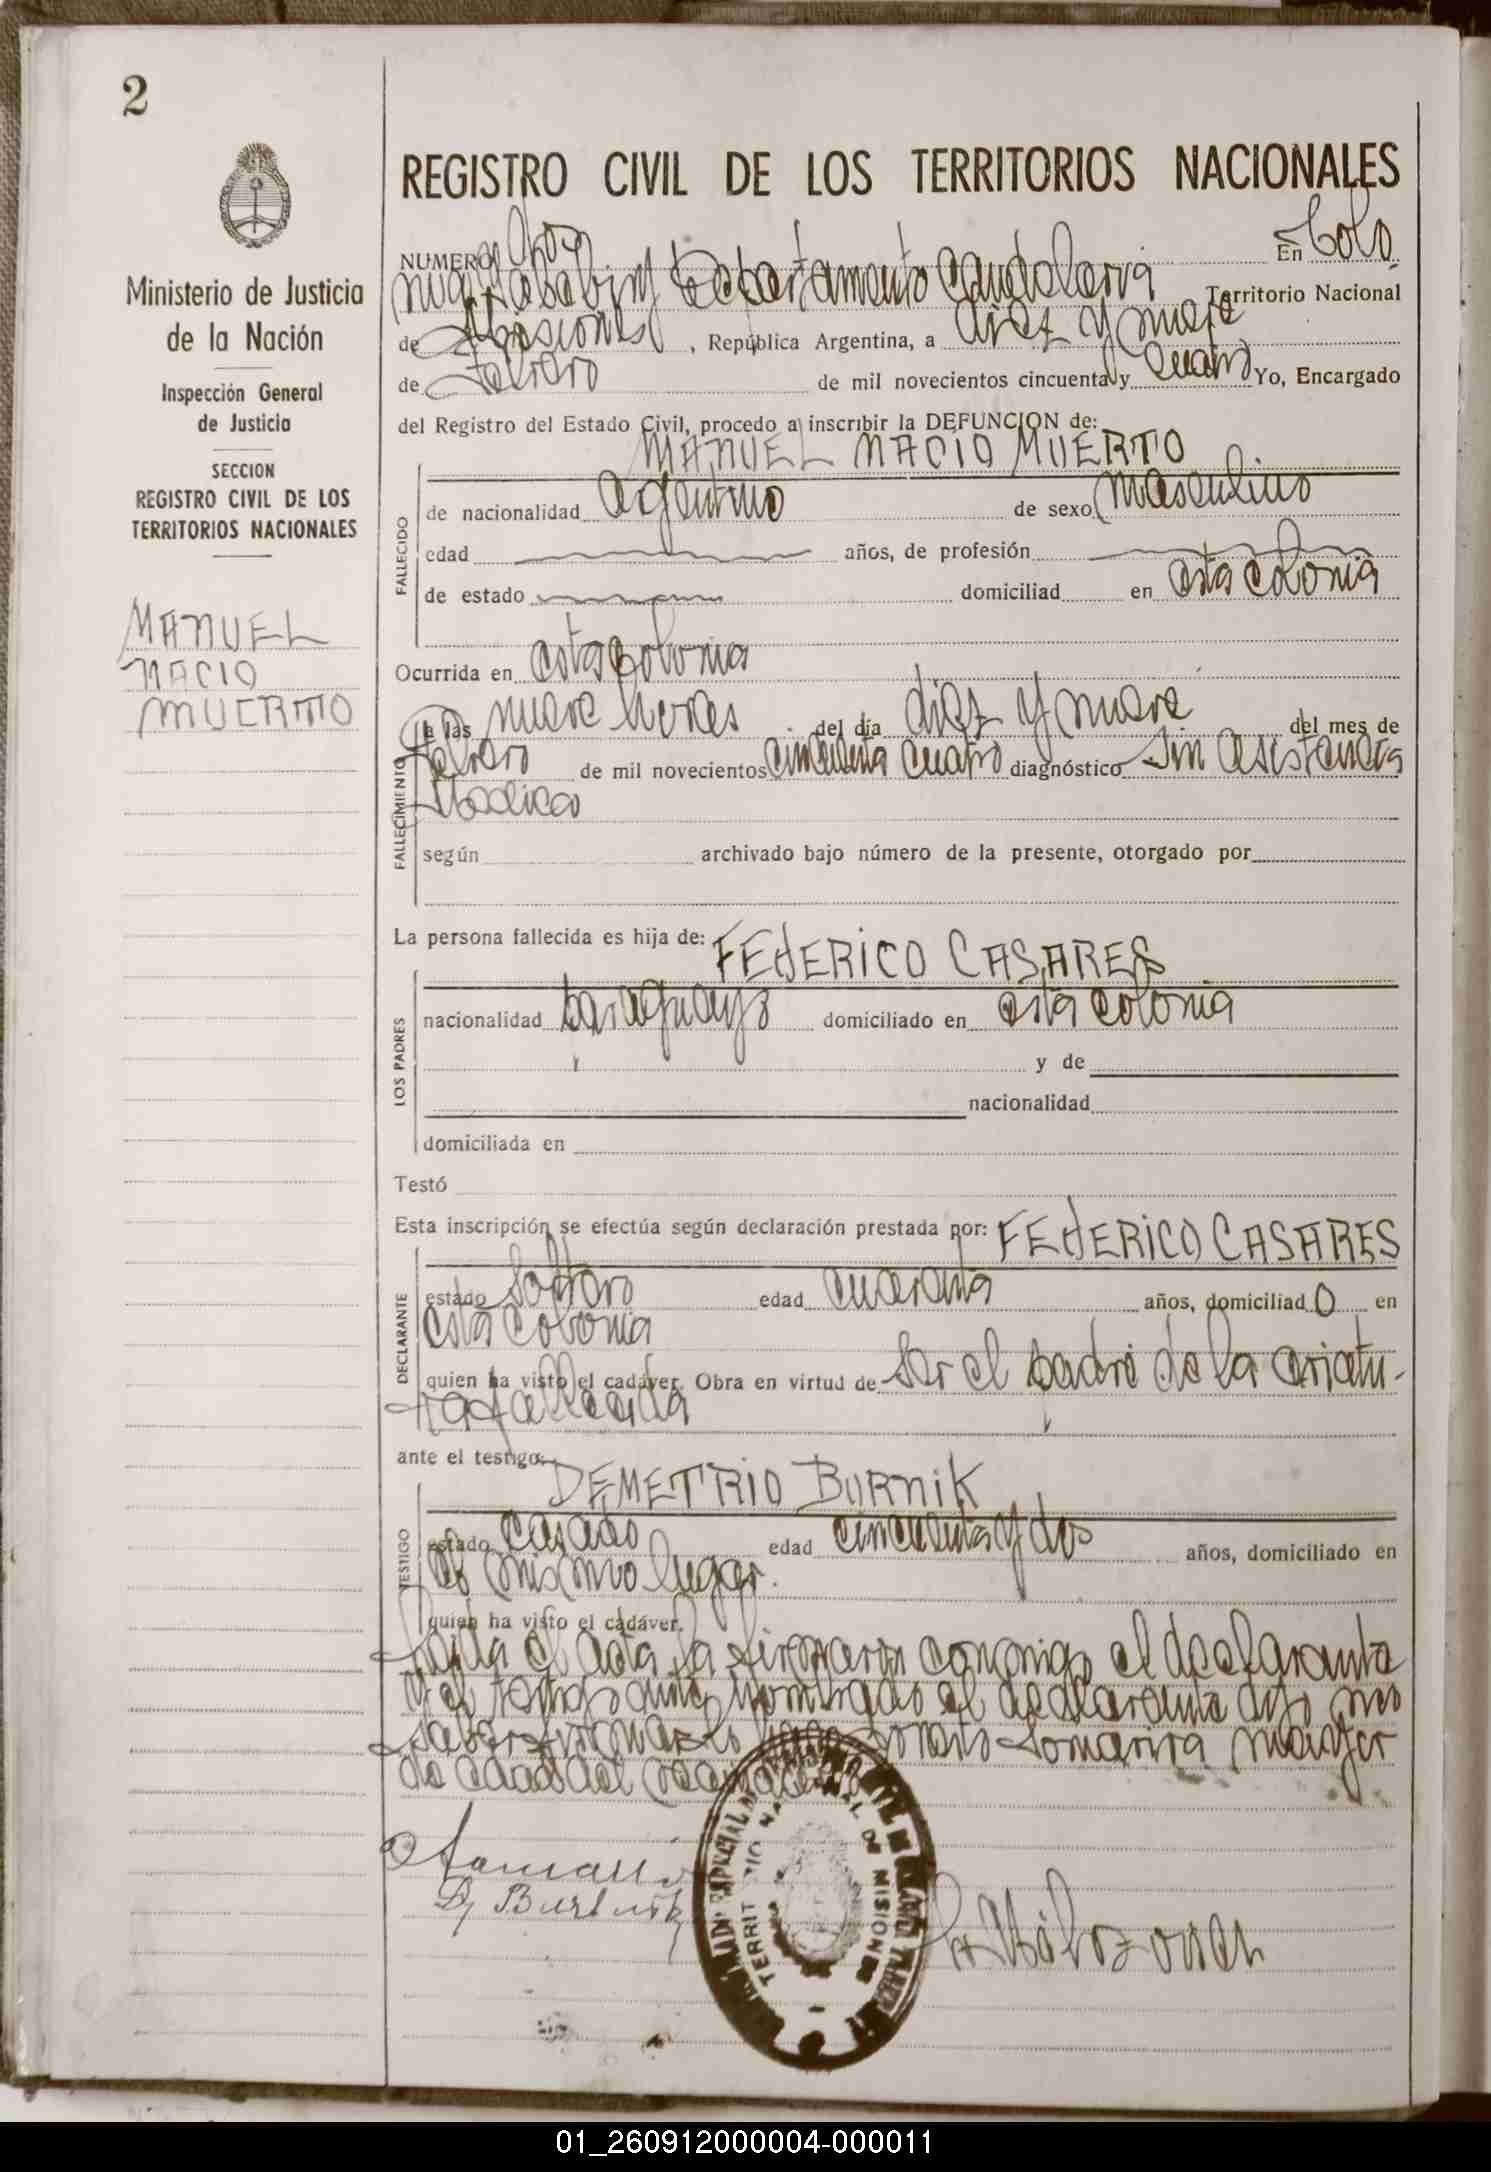 2
REGISTRO CIVIL DE LOS TERRITORIOS NACIONALES
Ministerio de Justicia
de la Nación
Inspección General
de Justicia
SECCION
REGISTRO CIVIL DE LOS
TERRITORIOS NACIONALES
MANUEL
NACIO
MUERTO
NUMERO Dos En Colo
nia Departamento Candelaria Territorio Nacional
de Misiones, República Argentina, a diez y nueve
de febrero de mil novecientos cincuenta y cuatro Yo, Encargado
del Registro del Estado Civil, procedo a inscribir la DEFUNCION de:
MANUEL NACIO MUERTO
FALLECIDO
de nacionalidad argentino de sexo masculino
edad años, de profesión
de estado domiciliad en esta colonia
Ocurrida en esta colonia
FALLECIMIENTO
a las nueve horas del día diez y nueve del mes de
febrero de mil novecientos cincuenta cuatro diagnóstico sin asistencia
Medica
según archivado bajo número de la presente, otorgado por
La persona fallecida es hija de: FEdERICO CASARES
LOS PADRES
nacionalidad paraguayo domiciliado en esta colonia
y de
nacionalidad
domiciliada en
Testó
Esta inscripción se efectúa según declaración prestada por: FEdERICO CASARES
DECLARANTE
estado soltero edad cuarenta años, domiciliad o en
esta colonia
quien ha visto el cadáver. Obra en virtud de ser el padre de la criatu-
ra fallecida
ante el testigo: DEMETRIO BURNIK
TESTIGO
estado casado edad cincuenta y dos años, domiciliado en
el mismo lugar.
quien ha visto el cadáver.
Leida el acta la firmaron conmigo el declarante
y el testigo antes nombrado el declarante dijo no
saber firmar mayor
de edad del
TERRITORIO NACIONAL DE MISIONES
01_260912000004-000011